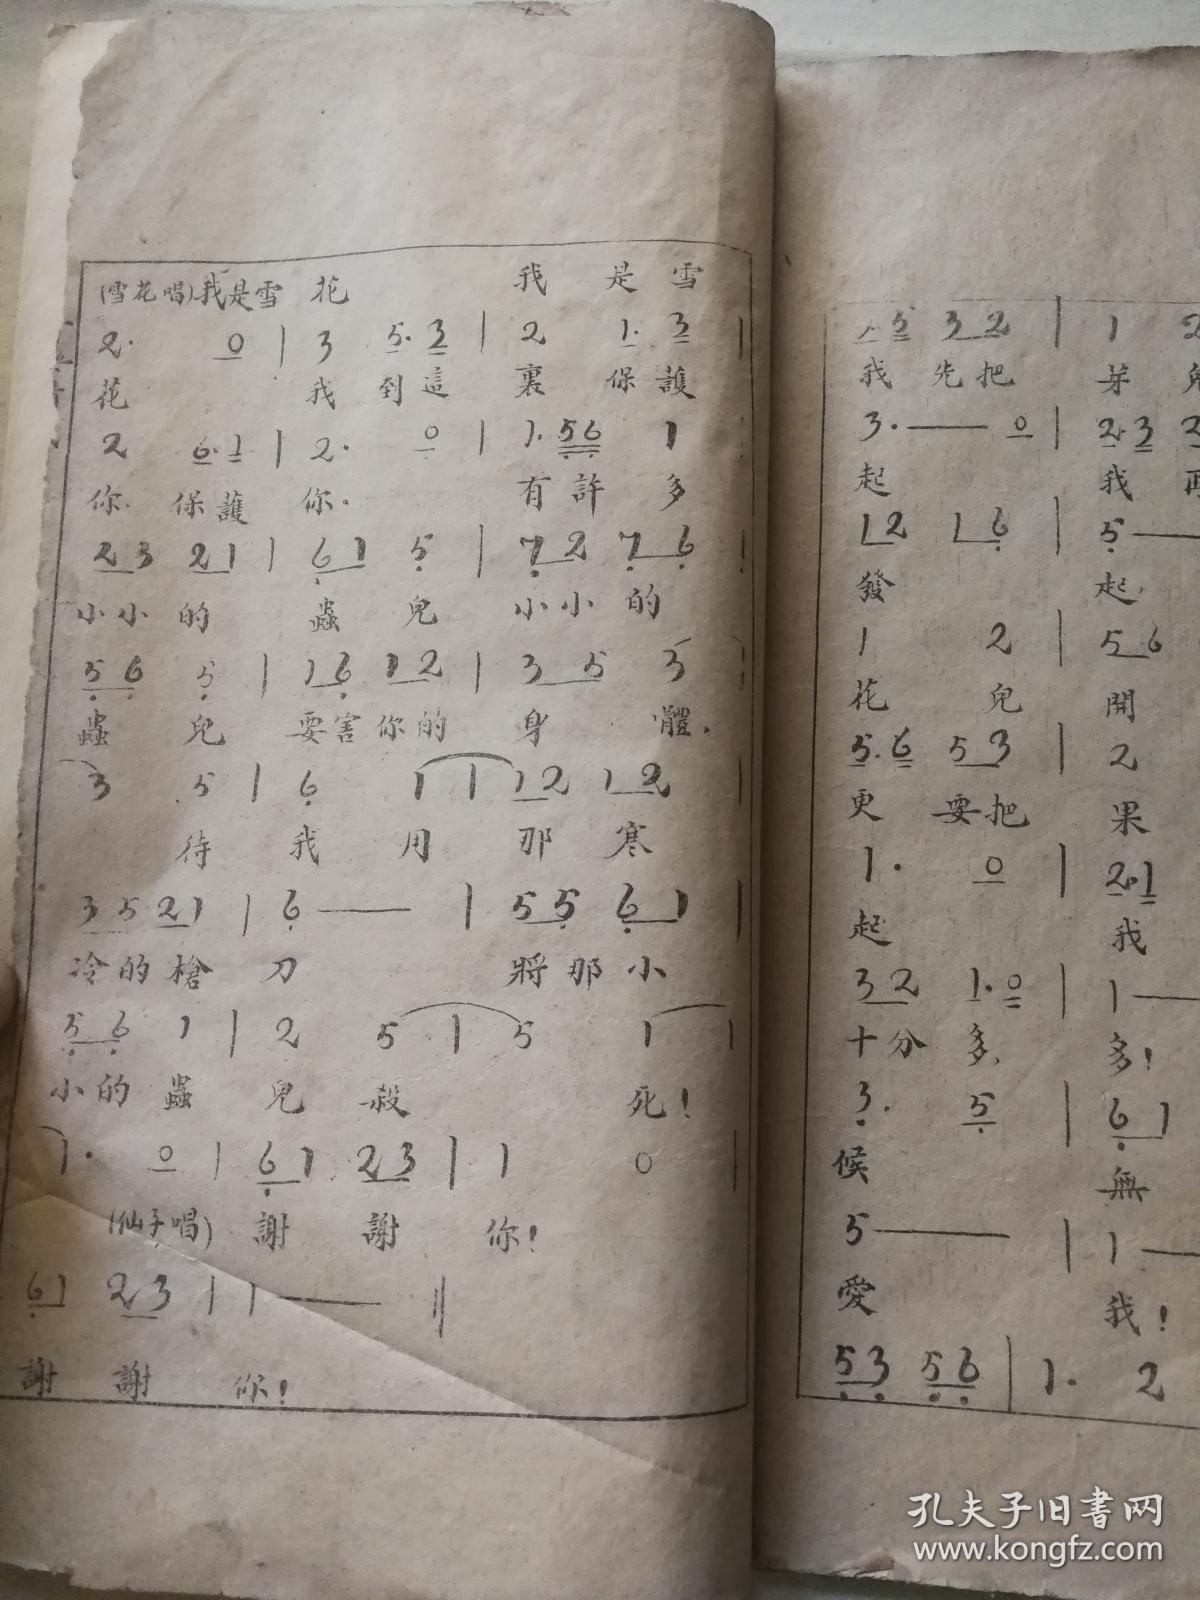 (雪花唱)我是雪花 我是雪
2· 0 | 3 5·3 | 2 1·3 |
花 我到這裏保護
2 6·1 | 2· 0 | 1·56 1
你. 保護你. 有許多
23 21 | 61 5 | 72 76
小小的蟲兒小小的
56 5 | 16 12 | 35 3
蟲兒要害你的身體.
3 5 | 6 1 | 12 12 |
待我用那寒
35 21 | 6— | 55 61 |
冷的槍刀 將那小
56 1 | 2 5 | 5 1 |
小的蟲兒殺 死!
1· 0 | 61 23 | 1 0 |
(仙子唱) 謝謝你!
61 23 | 1— ‖
謝謝你!
5 32 | 1
我先把 芽
3·— 0 | 2·3
起 我
12 16 | 5—
發 起,
1 2 | 56
花兒開
5·6 53 | 2
更要把果
1· 0 | 2·1
起 我
32 1·0 | 1—
十分多, 多!
3· 5 | 61
候 無
5— | 1—
愛 我!
53 56 | 1· 2
孔夫子旧书网
www.kongfz.com